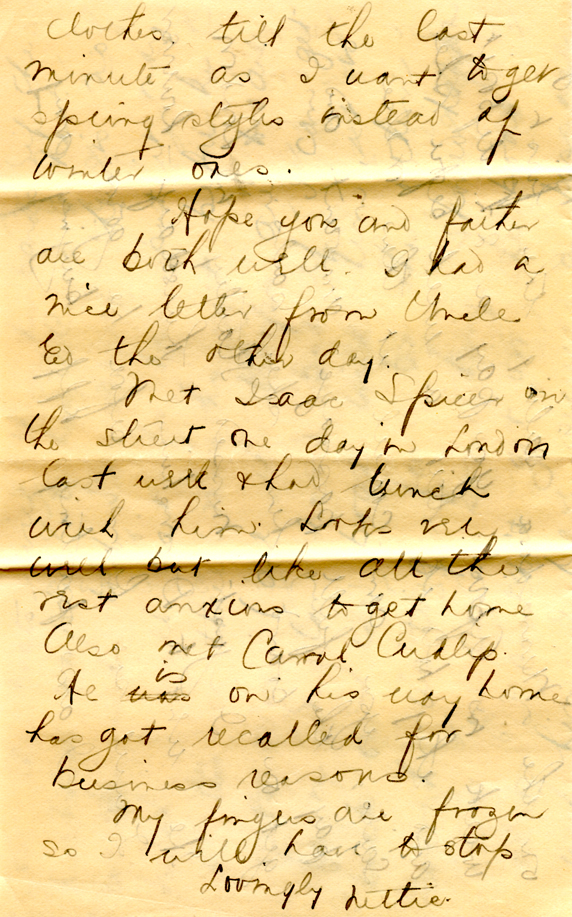 clothes till the last
minute as I want to get
spring styles instead of
winter ones.
Hope you and father
are both well. I had a
nice letter from Uncle
Ed the other day.
Met Isaac Spicer on
the street one day in London
last week & had lunch
with him. Looks very
well but like all the
rest anxious to get home
Also met Carrol Cudlip.
He was is on his way home
has got recalled for
business reasons.
My fingers are frozen
so I will have to stop
Lovingly Nettie.